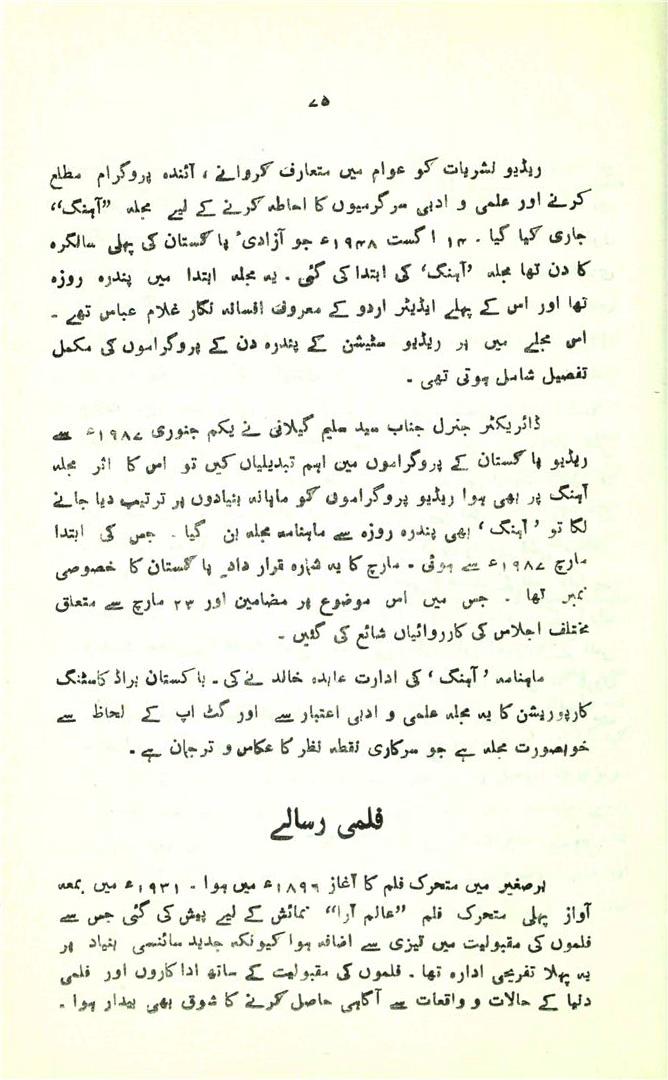 ۷۵
ریڈیو نشریات کو عوام میں متعارف کروانے ، آئندہ پروگرام مطلع
کرنے اور علمی و ادبی سرگرمیوں کا احاطہ کرنے کے لیے مجلہ ”آہنگ“،
جاری کیا گیا ۔ ۱۴ اگست ۱۹۴۸ء جو آزادیٔ پاکستان کی پہلی سالگرہ
کا دن تھا مجلہ ’آہنگ‘ کی ابتدا کی گئی ۔ یہ مجلہ ابتدا میں پندرہ روزہ
تھا اور اس کے پہلے ایڈیٹر اردو کے معروف افسانہ نگار غلام عباس تھے ۔
اس مجلے میں ہر ریڈیو سٹیشن کے پندرہ دن کے پروگراموں کی مکمل
تفصیل شامل ہوتی تھی ۔
ڈائریکٹر جنرل جناب سید سلیم گیلانی نے یکم جنوری ۱۹۸۷ء سے
ریڈیو پاکستان کے پروگراموں میں اہم تبدیلیاں کیں تو اس کا اثر مجلہ
آہنگ پر بھی ہوا ریڈیو پروگراموں کو ماہانہ بنیادوں پر ترتیب دیا جانے
لگا تو ’آہنگ‘ بھی پندرہ روزہ سے ماہنامہ مجلہ بن گیا ۔ جس کی ابتدا
مارچ ۱۹۸۷ء سے ہوئی ۔ مارچ کا یہ شمارہ قرار دادِ پاکستان کا خصوصی
نمبر تھا ۔ جس میں اس موضوع پر مضامین اور ۲۳ مارچ سے متعلق
مختلف اجلاس کی کارروائیاں شائع کی گئیں ۔
ماہنامہ ’آہنگ‘ کی ادارت عابدہ خالد نے کی ۔ پاکستان براڈ کاسٹنگ
کارپوریشن کا یہ مجلہ علمی و ادبی اعتبار سے اور گٹ اپ کے لحاظ سے
خوبصورت مجلہ ہے جو سرکاری نقطہ نظر کا عکاس و ترجمان ہے ۔
فلمی رسالے
برصغیر میں متحرک فلم کا آغاز ۱۸۹۶ء میں ہوا ۔ ۱۹۳۱ء میں بمعہ
آواز پہلی متحرک فلم ”عالم آرا“ نمائش کے لیے پیش کی گئی جس سے
فلموں کی مقبولیت میں تیزی سے اضافہ ہوا کیونکہ جدید سائنسی بنیاد پر
یہ پہلا تفریحی ادارہ تھا ۔ فلموں کی مقبولیت کے ساتھ اداکاروں اور فلمی
دنیا کے حالات و واقعات سے آگاہی حاصل کرنے کا شوق بھی بیدار ہوا ۔